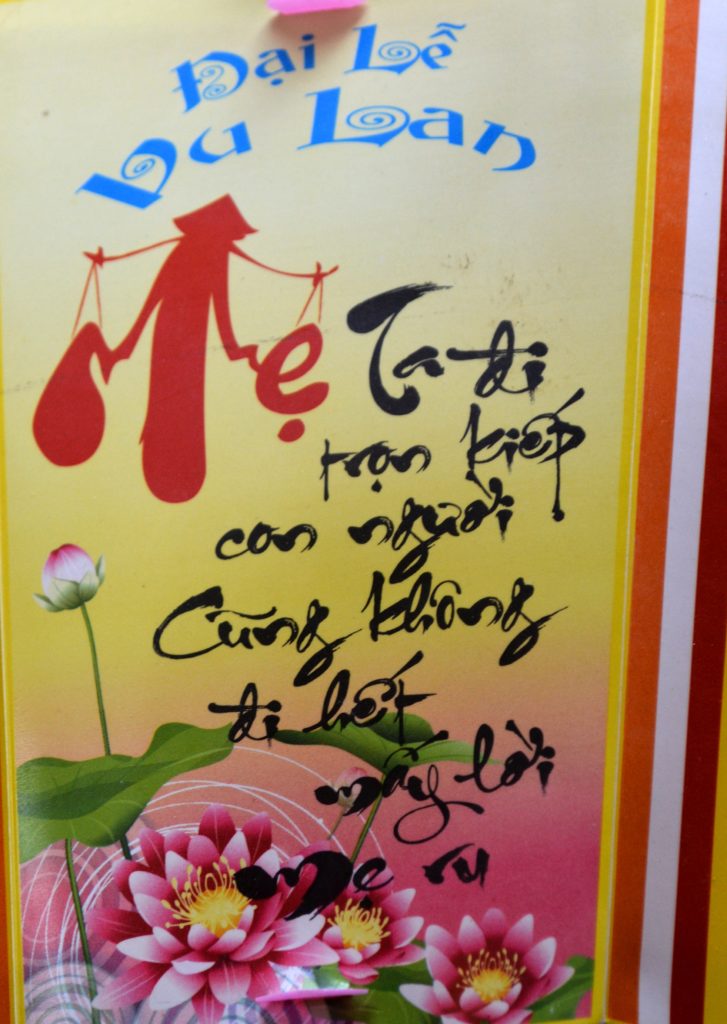 Đại Lễ
Vu Lan
Mẹ
Ta đi
trọn kiếp
con người
Cũng không
đi hết
mấy lời
mẹ ru